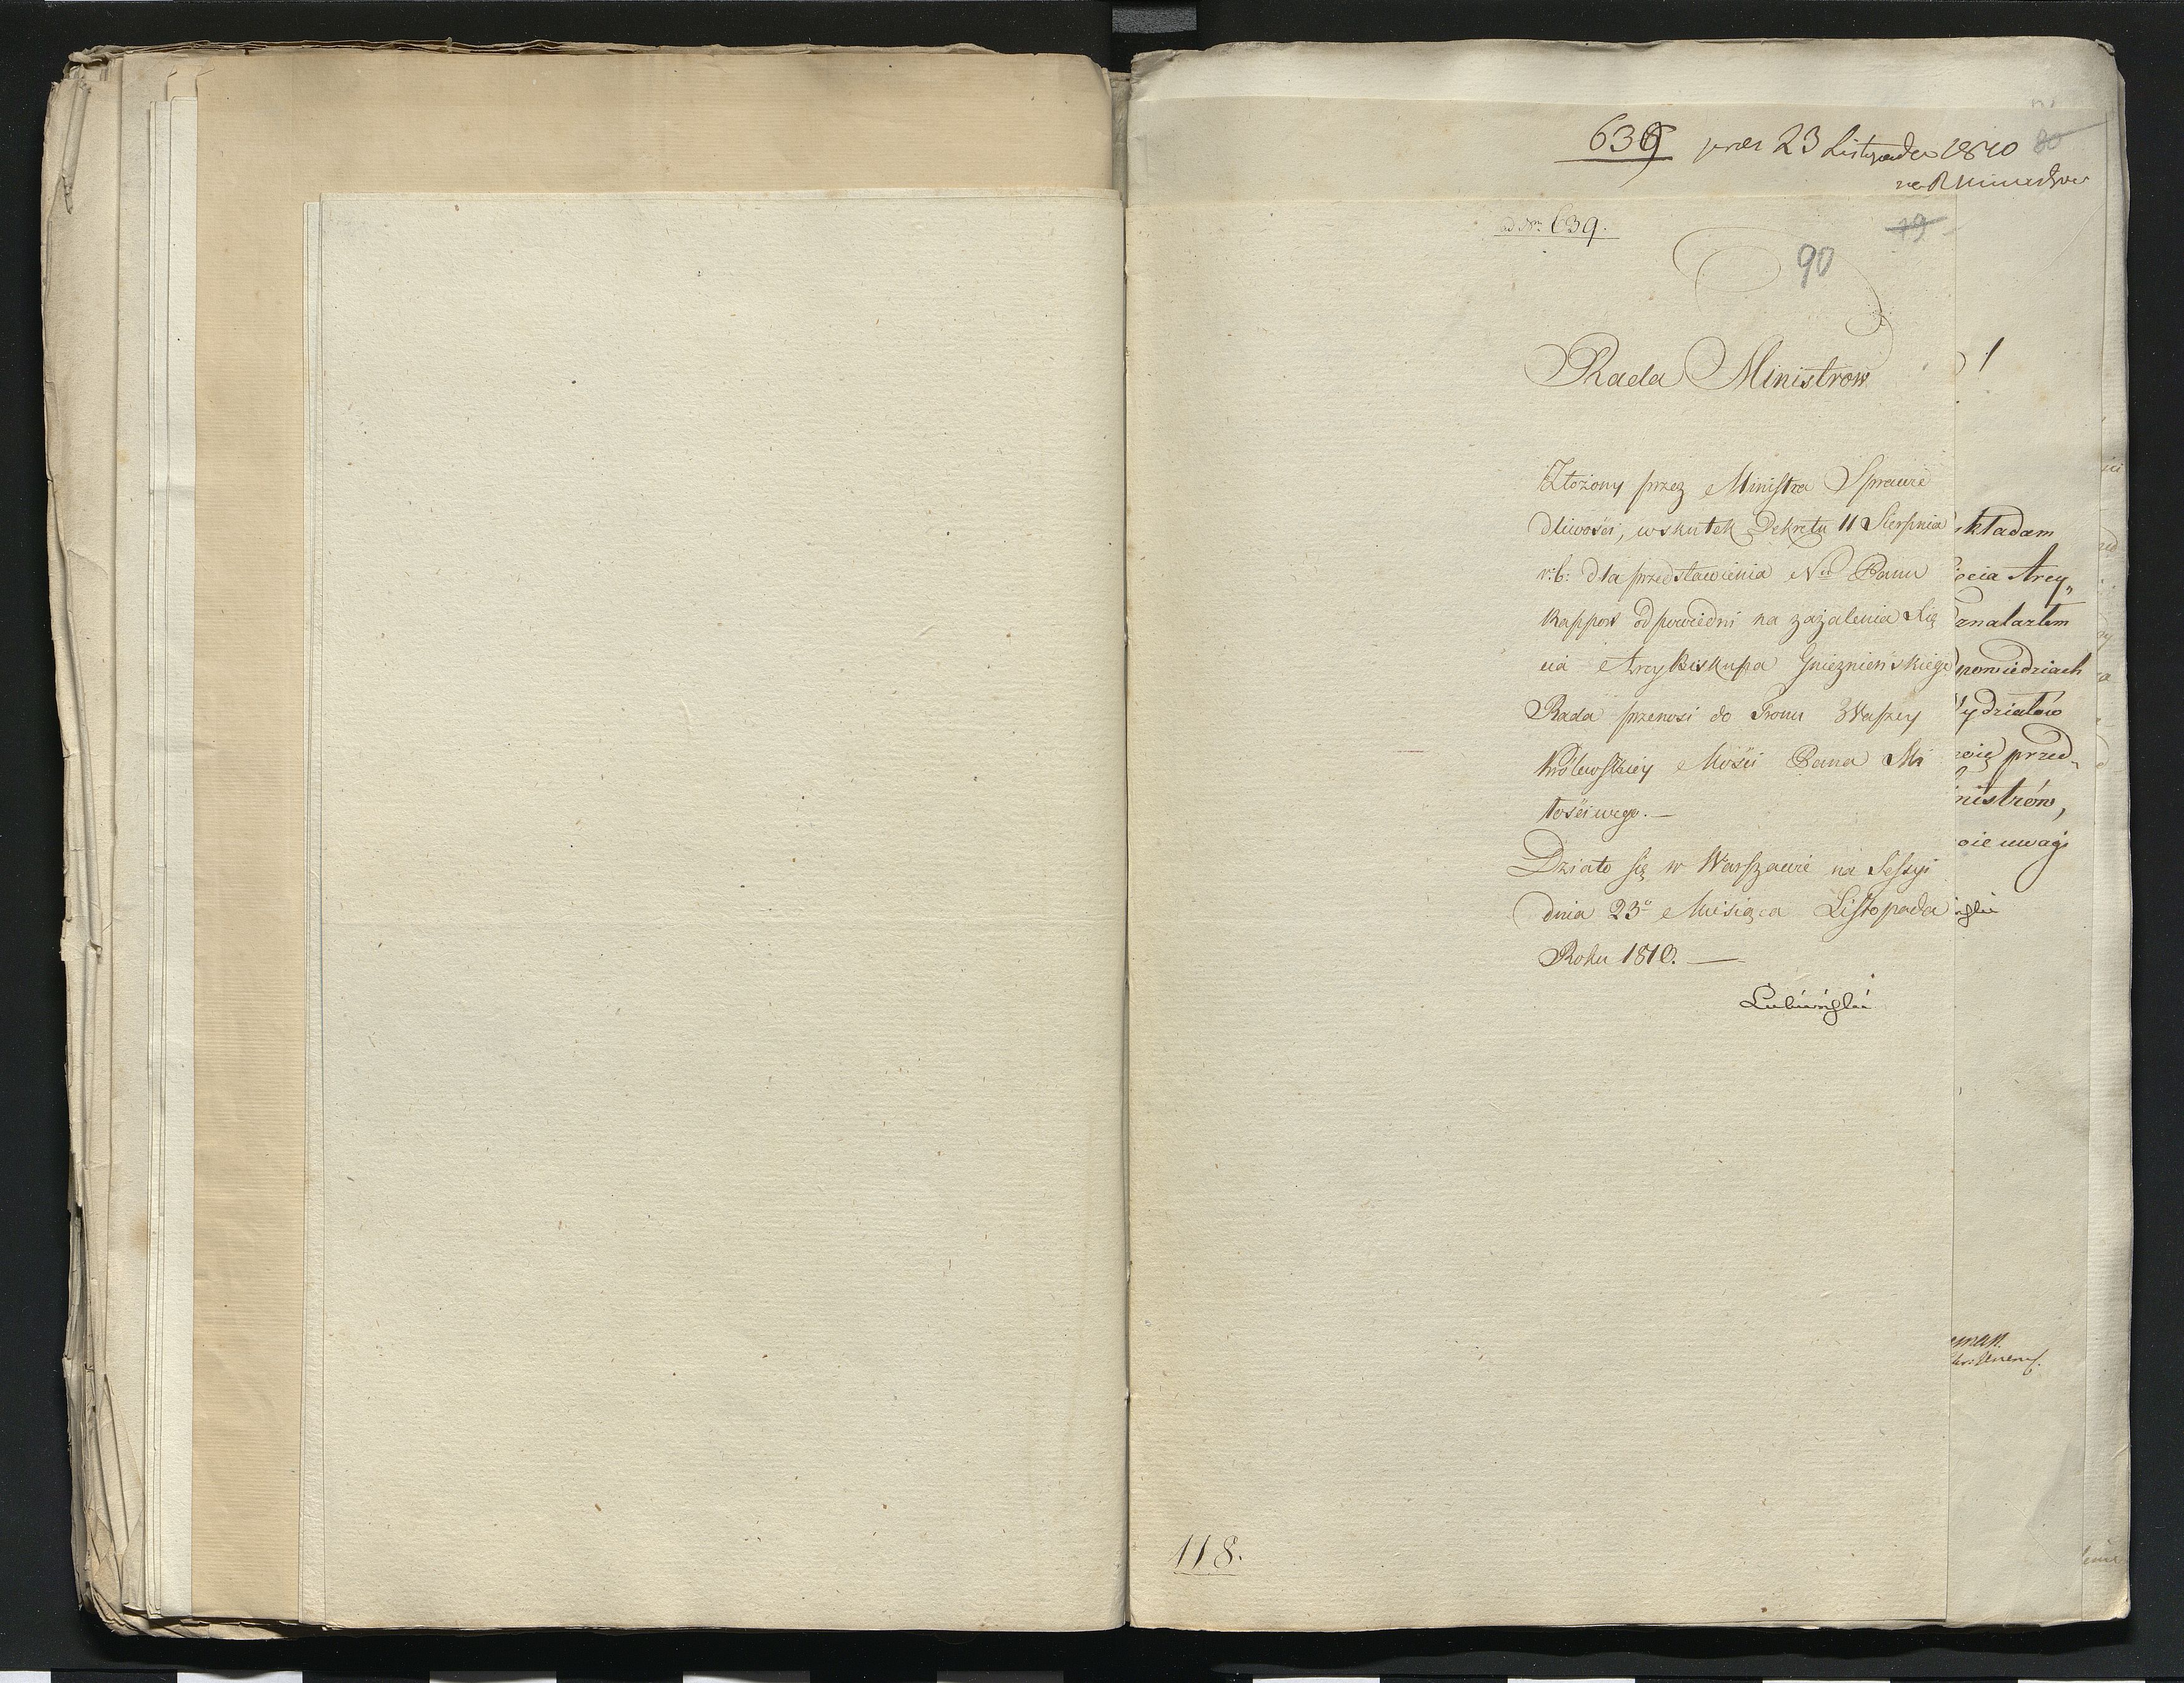 639 pres 23 Listopada 1810 80
na R Ministrow
ad Nrm 639. 79
90
Rada Ministrow
Złożony przez Ministra Sprawie
dliwości, wskutek Dekretu 11 Sierpnia
r: b: dla przedstawienia Nu Panu
Rapport odpowiedni na zażalenia Xię
cia Arcybiskupa Gnieznieńskiego
Rada przenosi do Tronu Waszey
Królewskiey Mości Pana Mi
łościwego. —
Działo się w Warszawie na Sessyi
dnia 23o Miesiąca Listopada
Roku 1810. —
Lubieński
118.
!
kładam
ęcia Arcy„
znalazłem
powiedziach
ydziałów
wię przed„
nistrów,
oie uwagi